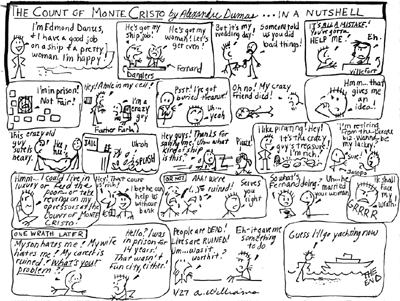 THE COUNT OF MONTE CRISTO by Alexandre Dumas ... IN A NUTSHELL
I'm Edmond Dantes,
I have a good job
on a ship & a pretty
woman. I'm happy!
He's got my
ship job!
Danglars
He's got my
woman! Let's
get even!
Fernand
But it's my
wedding day!
Someone told
us you did
bad things!
IT'S ALL A MISTAKE!
You've gotta
HELP ME!
Eh.
Villefort
I'm in prison!
Not fair!
Hey! Artie in my cell!
I'm a
crazy
guy
Psst! I've got
buried treasure!
Uh --
yeah
Oh no! My crazy
friend died!
Hmm-- that
gives me
an idea!
This crazy old
guy
sure is
heavy.
Father Faria
JAIL
Uhoh
SPLUSH
Hey guys! Thanks for
saving me! Um-- what
kind of ship
is this?
Pirate!
I like pirating! Hey!
It's the crazy
guy's treasure!
I'm rich!
I'm retiring
from
Wanna be
my lackey?
Hmm-- I could live in
luxury or feed the
poor-- or take
revenge on my
oppressors as the
COUNT OF MONTE
CRISTO!
Hey! That count
is rich!
I bet he can help
us without
bank
OR NOT
Aha! We're
ruined!
Serves
you
right
So what's
Fernand doing?
Um-- he
married your
woman
It shall
face
my
wrath!
GRRRR
ONE WRATH LATER
My son hates me! My wife
hates me! My career is
ruined! What's your
problem?
Hello! I was
in prison for
14 years!
That wasn't
fun city, either!
People are DEAD!
Lives are RUINED!
Um-- was it
worth it?
Eh-- it gave me
something
to do
4/27 a. williams
Guess I'll go yachting now
THE
END